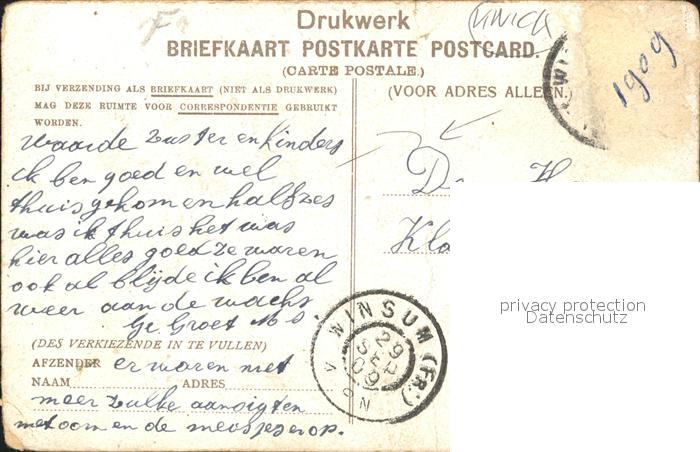 Drukwerk
BRIEFKAART POSTKARTE POSTCARD.
(CARTE POSTALE.)
BIJ VERZENDING ALS BRIEFKAART (NIET ALS DRUKWERK)
MAG DEZE RUIMTE VOOR CORRESPONDENTIE GEBRUIKT
WORDEN.
(VOOR ADRES ALLEEN.)
1909
waarde zuster en kinders
ik ben goed en wel
thuis gekomen half zes
was ik thuis het was
hier alles goed ze waren
ook al blijde ik ben al
weer aan de wachs
Ge Groet
(DES VERKIEZENDE IN TE VULLEN)
AFZENDER er waren niet
NAAM ADRES
meer zulke aanzigten
met oom en de meisjes er op.
WINSUM (FR.)
29
SEP
09
privacy protection
Datenschutz